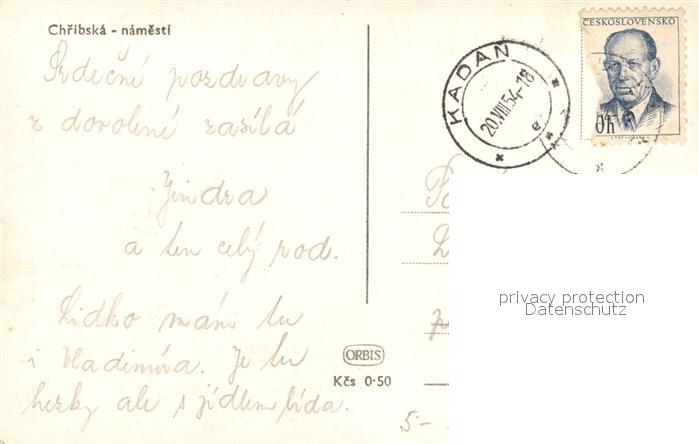 Chřibská - náměstí
Srdečné pozdravy
z dovolené zasílá
Jindra
a ten celý rod.
Lidko mám tu
i Vladimíra. Je tu
hezky ale s jídlem bída.
ORBIS
Kčs 0·50
5-
KADAŇ
20.VIII.54-18
e
ČESKOSLOVENSKO
h
privacy protection
Datenschutz